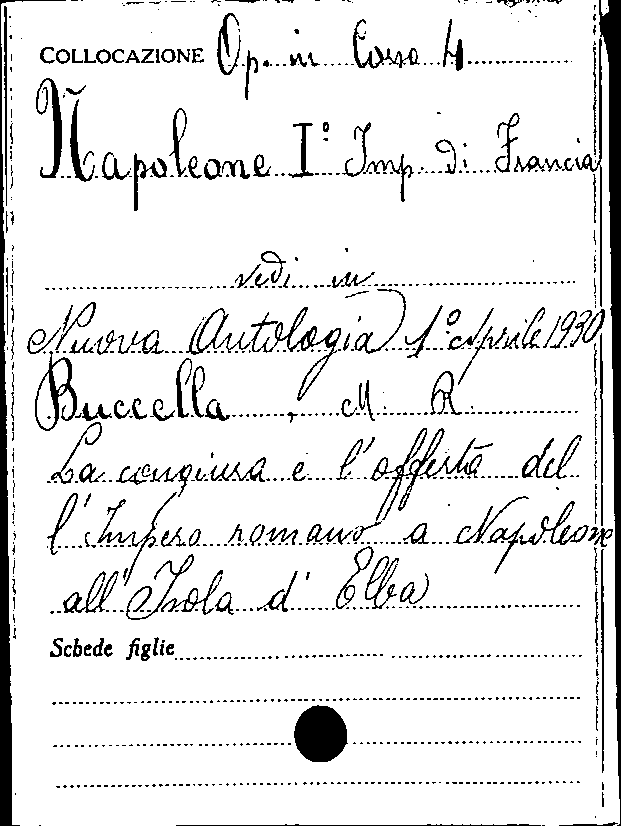 COLLOCAZIONE Op. in Corso 4
Napoleone I° Imp. di Francia
vedi in
Nuova Antologia 1° Aprile 1930
Buccella, M. R.
La congiura e l'offerta del
l'Impero romano a Napoleone
all'Isola d'Elba
Schede figlie